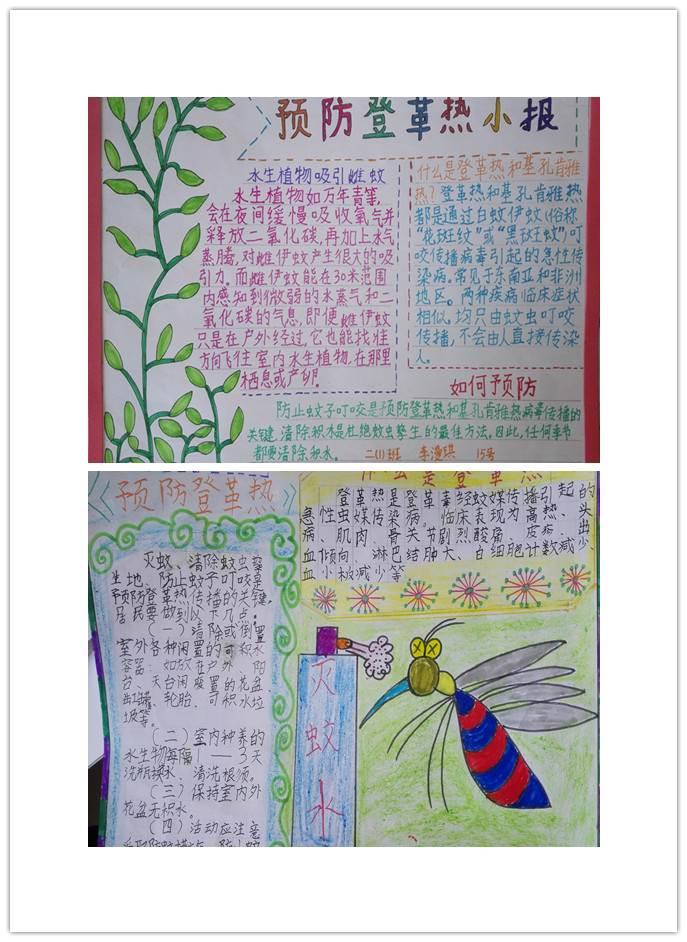 预防登革热小报
水生植物吸引雌蚊
水生植物如万年青等,
会在夜间缓慢吸收氧气并
释放二氧化碳,再加上水气
蒸腾,对雌伊蚊产生很大的吸
引力。而雌伊蚊能在30米范围
内感知到微弱的水蒸气和二
氧化碳的气息,即便雌伊蚊
只是在户外经过,它也能找准
方向飞往室内水生植物,在那里
栖息或产卵。
什么是登革热和基孔肯雅
热?登革热和基孔肯雅热
都是通过白蚊伊蚊(俗称
“花斑纹”或“黑斑蚊”,叮
咬传播病毒引起的急性传
染病。常见于东南亚和非洲
地区。两种疾病临床症状
相似。均只由蚊虫叮咬
传播,不会由人直接传染
人。
如何预防
防止蚊子叮咬是预防登革热和基孔肯雅热病毒传播的
关键,清除积水是杜绝蚊虫孳生的最佳方法。因此,任何季节
都要清除积水。 二(1)班 15号
预防登革热
灭蚊、清除蚊虫孳
生地、防止蚊子叮咬是
预防登革热传播的关键,
居民要做到以下几点:
(一)清除或倒置
室外各种闲置的可积水
容器:如放在户外、阳
台、天台闲废置的花盆、
缸罐、轮胎、可积水垃
圾等。
(二)室内种养的
水生物每隔1——3天
洗瓶换水、清洗根须。
(三)保持室内外
花盆无积水。
(四)活动应注意
什么是登革热
登革热是登革毒经蚊媒传播引起的
急性虫媒传染病。临床表现为高热、头
病、肌肉、骨关节剧烈酸痛、皮疹、出
血倾向、淋巴结肿大、白细胞计数减少、
血小板减少等
灭蚊水